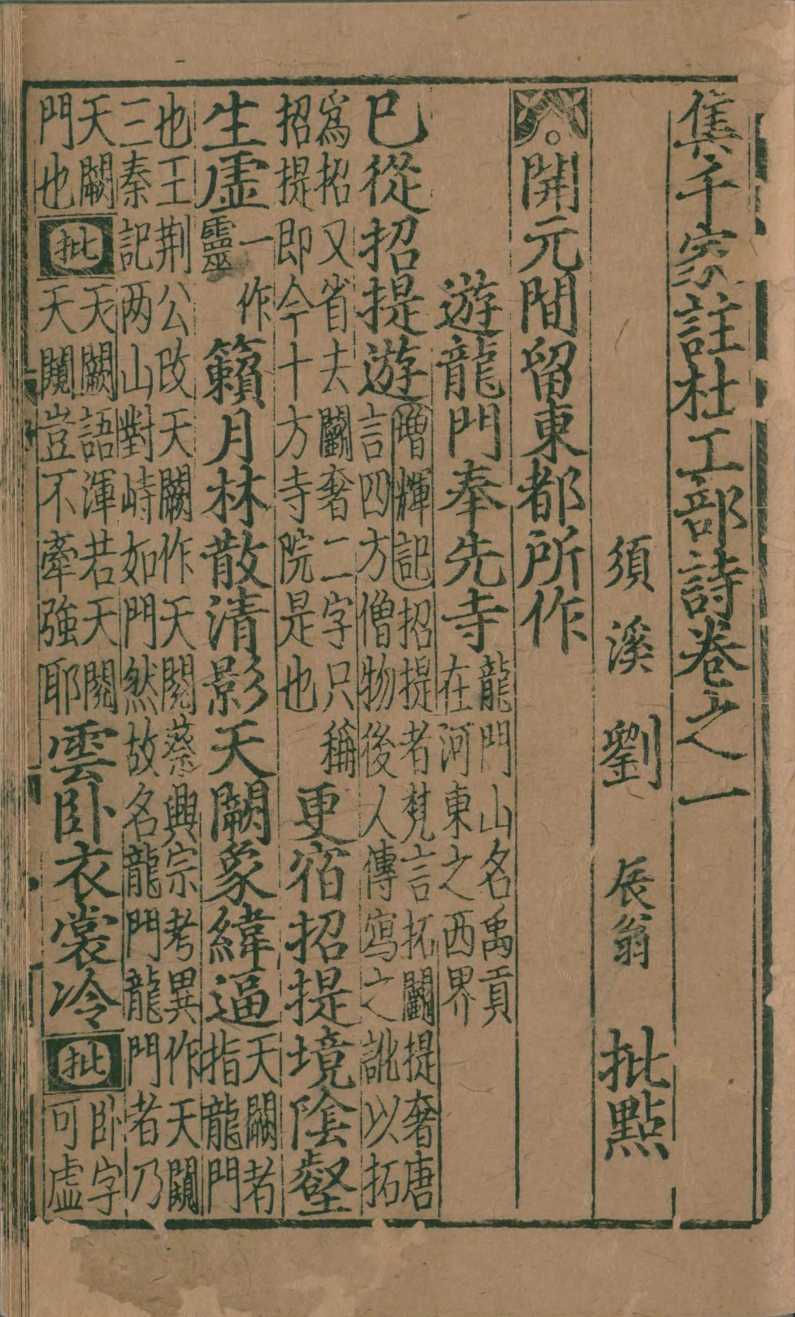 集千家註杜工部詩卷之一
須溪劉辰翁批點
開元間留東都所作
遊龍門奉先寺龍門山名禹貢在河東之西界
已從招提遊增輝記招提者梵言拓鬭提奢唐言四方僧物後人傳寫之訛以拓
為招又省去鬭奢二字只稱招提即今十方寺院是也更宿招提境陰壑
生虛一作靈籟月林散清影天闕象緯逼天闕者指龍門
也王荆公改天闕作天閱蔡興宗考異作天闚三秦記两山對峙如門然故名龍門龍門者乃
天闕門也批天闕語渾若天閱天闚豈不牽強耶雲卧衣裳冷批卧字可虛